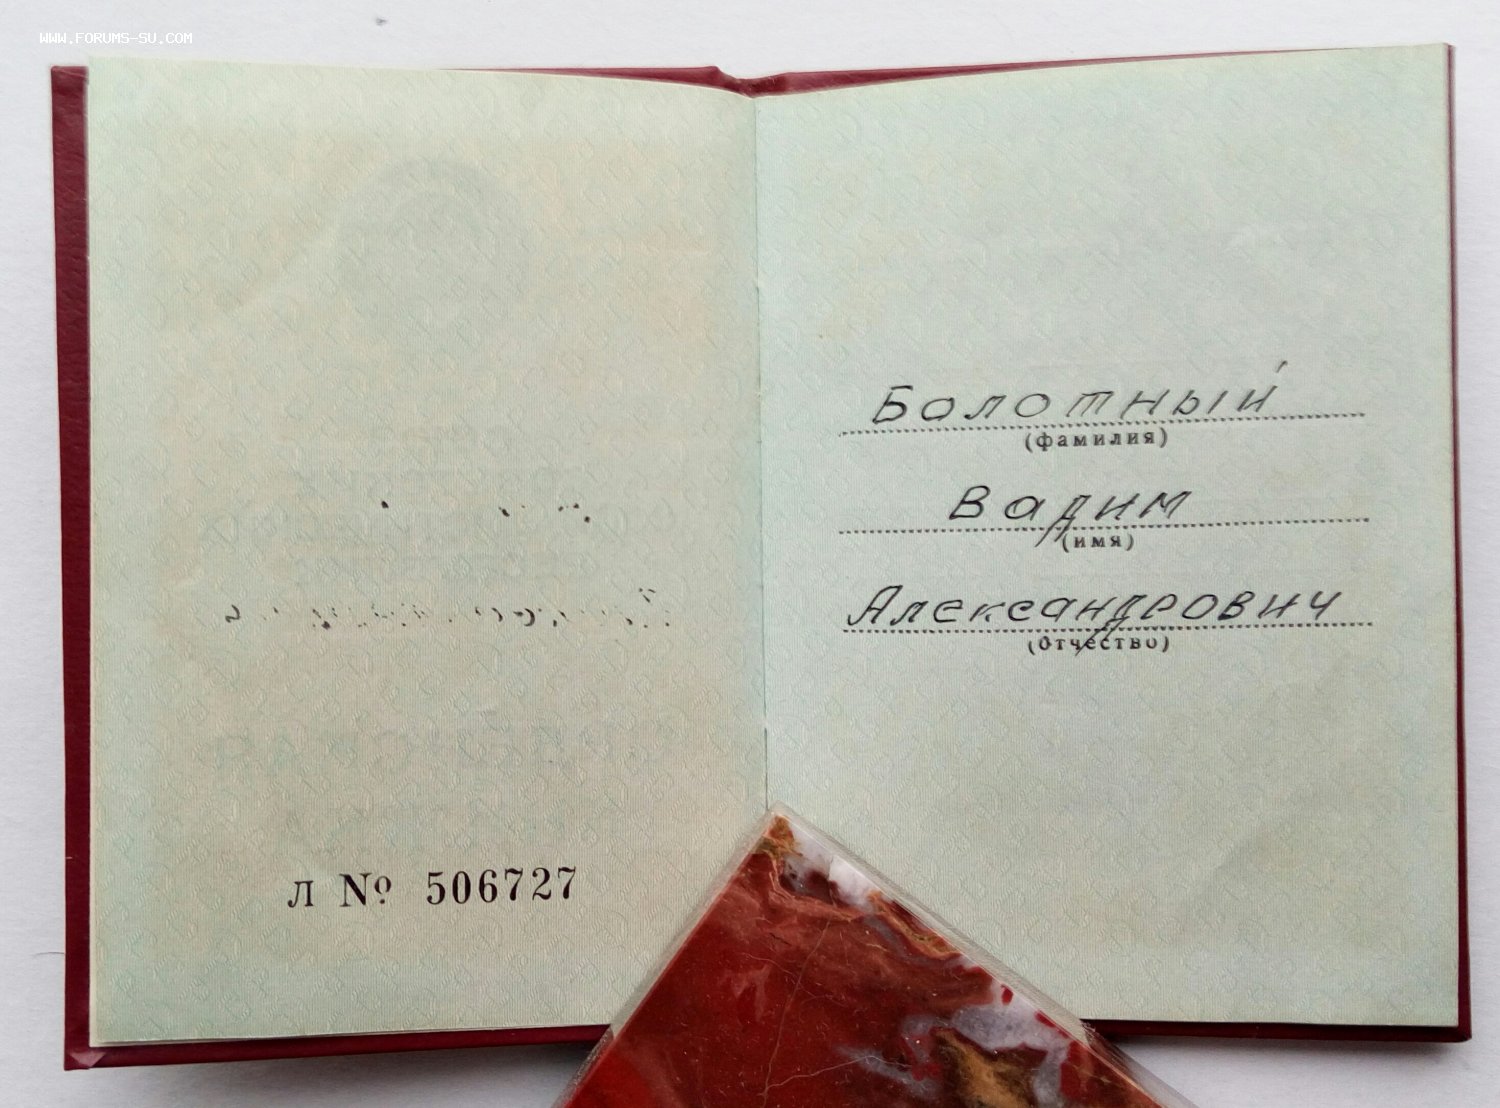 WWW.FORUMS-SU.COM
Л № 506727
Болотный
(фамилия)
Вадим
(имя)
Александрович
(Отчество)